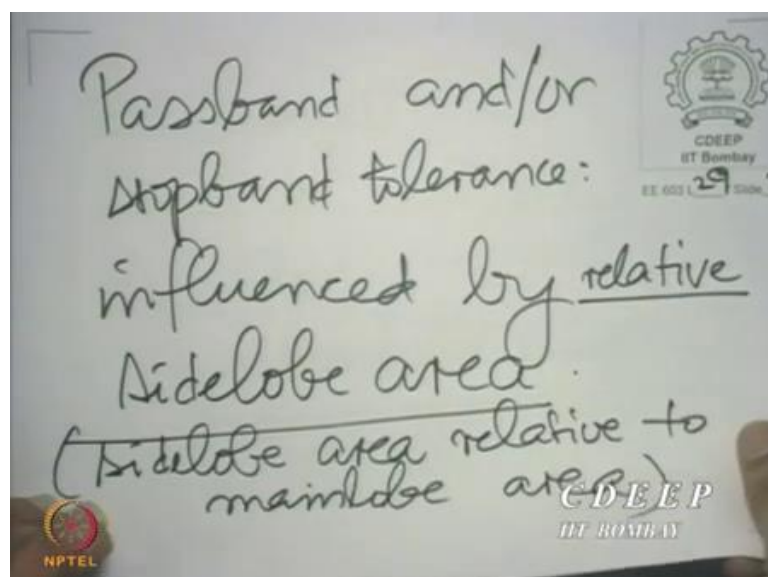 Passband and/or
stopband tolerance:
influenced by relative
sidelobe area.
(sidelobe area relative to
mainlobe area)
CDEEP
IIT Bombay
EE 603 L 29 Slide
CDEEP
IIT BOMBAY
NPTEL